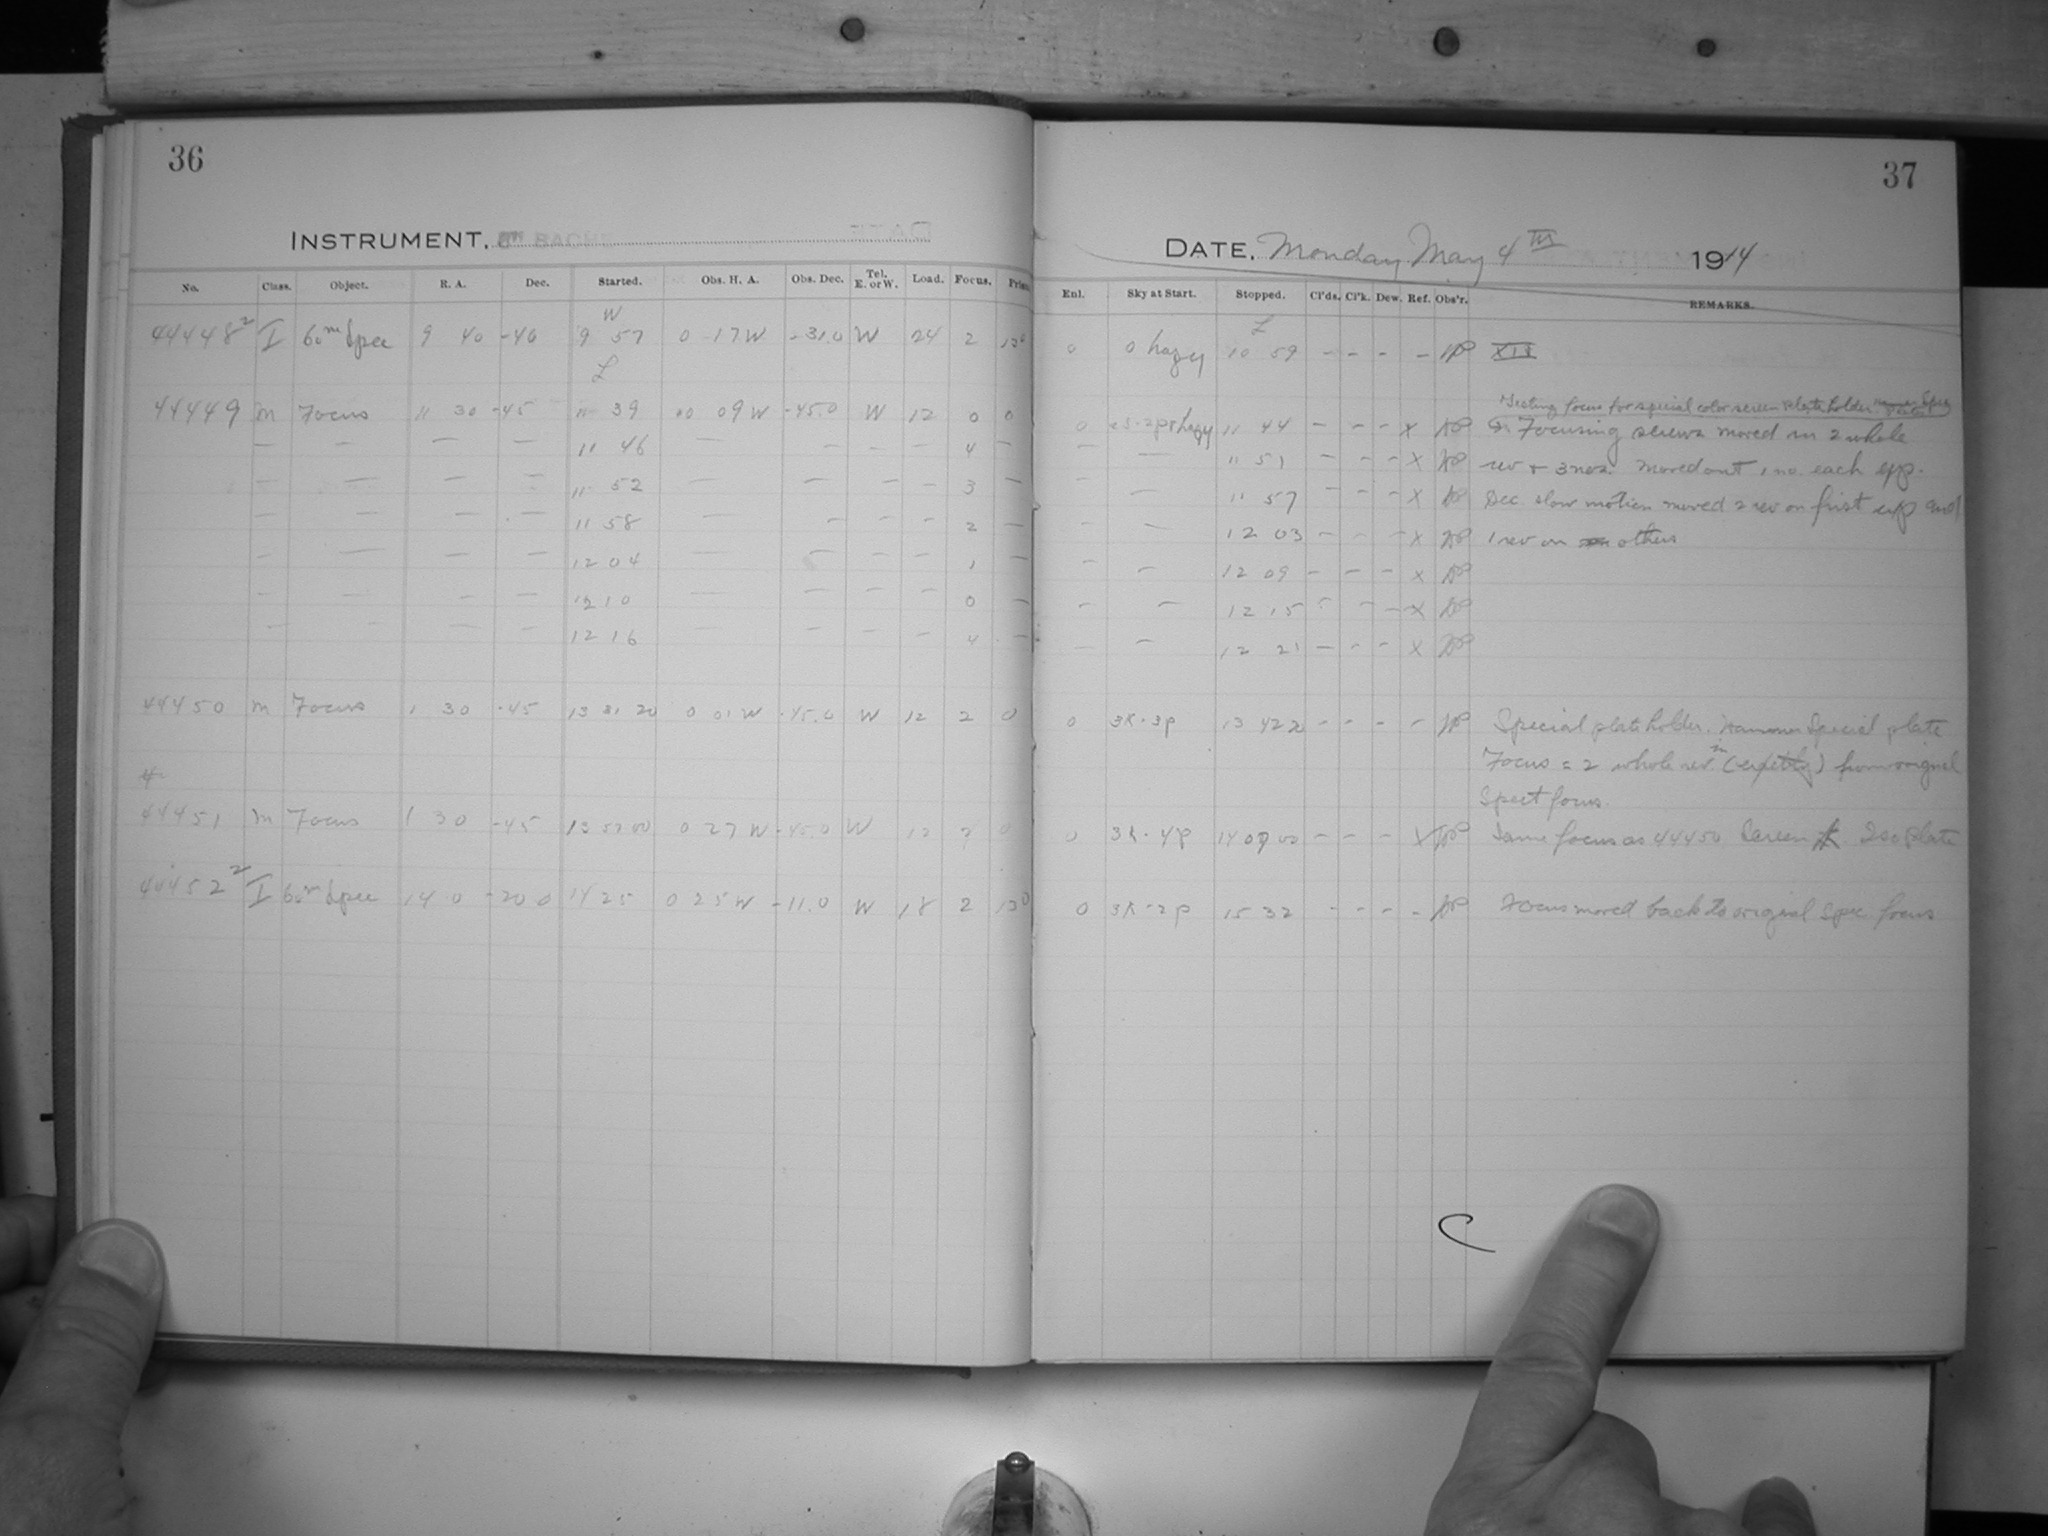 36
INSTRUMENT. 8" BACHE
No. Class. Object. R. A. Dec. Started. Obs. H. A. Obs. Dec. Tel. E. or W. Load. Focus. Prism
W
44448² I 60ᵐ Spec 9 40 -40 9 57 0 17 W -31.0 W 24 2 130
L
44449 M Focus 11 30 -45 11 39 00 09 W -45.0 W 12 0 0
— — — — 11 46 — — — — 4 —
— — — — 11 52 — — — — 3 —
— — — — 11 58 — — — — 2 —
— — — — 12 04 — — — — 1 —
— — — — 12 10 — — — — 0 —
— — — — 12 16 — — — — 4 —
44450 M Focus 1 30 -45 13 31 20 0 01 W -45.0 W 12 2 0
44451 M Focus 1 30 -45 13 57 00 0 27 W -45.0 W 12 2 0
44452² I 60ᵐ Spec 14 0 -20 0 14 25 0 25 W -11.0 W 18 2 130
37
DATE. Monday May 4th 1914
Enl. Sky at Start. Stopped. Cl'ds. Cl'k. Dew. Ref. Obs'r. REMARKS.
L
0 0 hazy 10 59 - - - -
Testing focus for special color screen plate holder. Spec plates
0 hazy 11 44 - - - x Focusing screws moved in 2 whole
— — 11 51 - - - x rev + 3 nos. Moved out 1 no. each exp.
— 11 57 - - - x Dec. slow motion moved 2 rev on first exp and
- — 12 03 - - - x 1 rev on others
- - 12 09 - - - x
- - 12 15 - - - x
— - 12 21 - - - x
0 3K-3P 13 42 2 - - - - Special plate holder. Hammer Special plate
Focus = 2 whole rev. in (exactly) from original
Spect focus.
0 3K-4P 14 09 00 - - - x Same focus as 44450 Screen Iso plate
0 3K-2P 15 32 - - - - Focus moved back to original Spec. focus
C